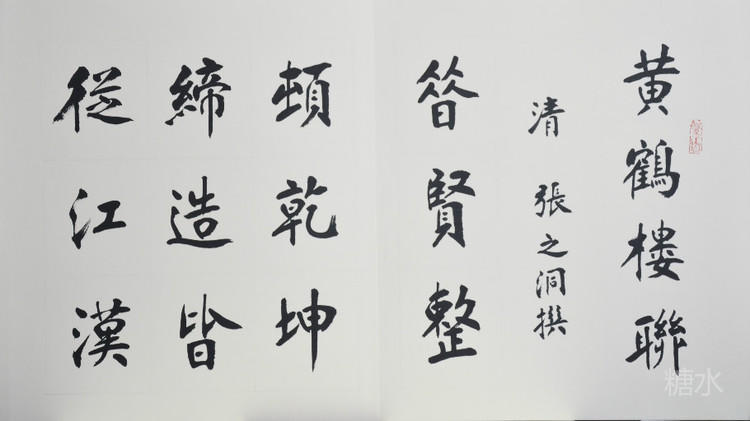 黄鶴樓聯
清 張之洞撰
昔賢整
頓乾坤
締造皆
從江漢
糖水